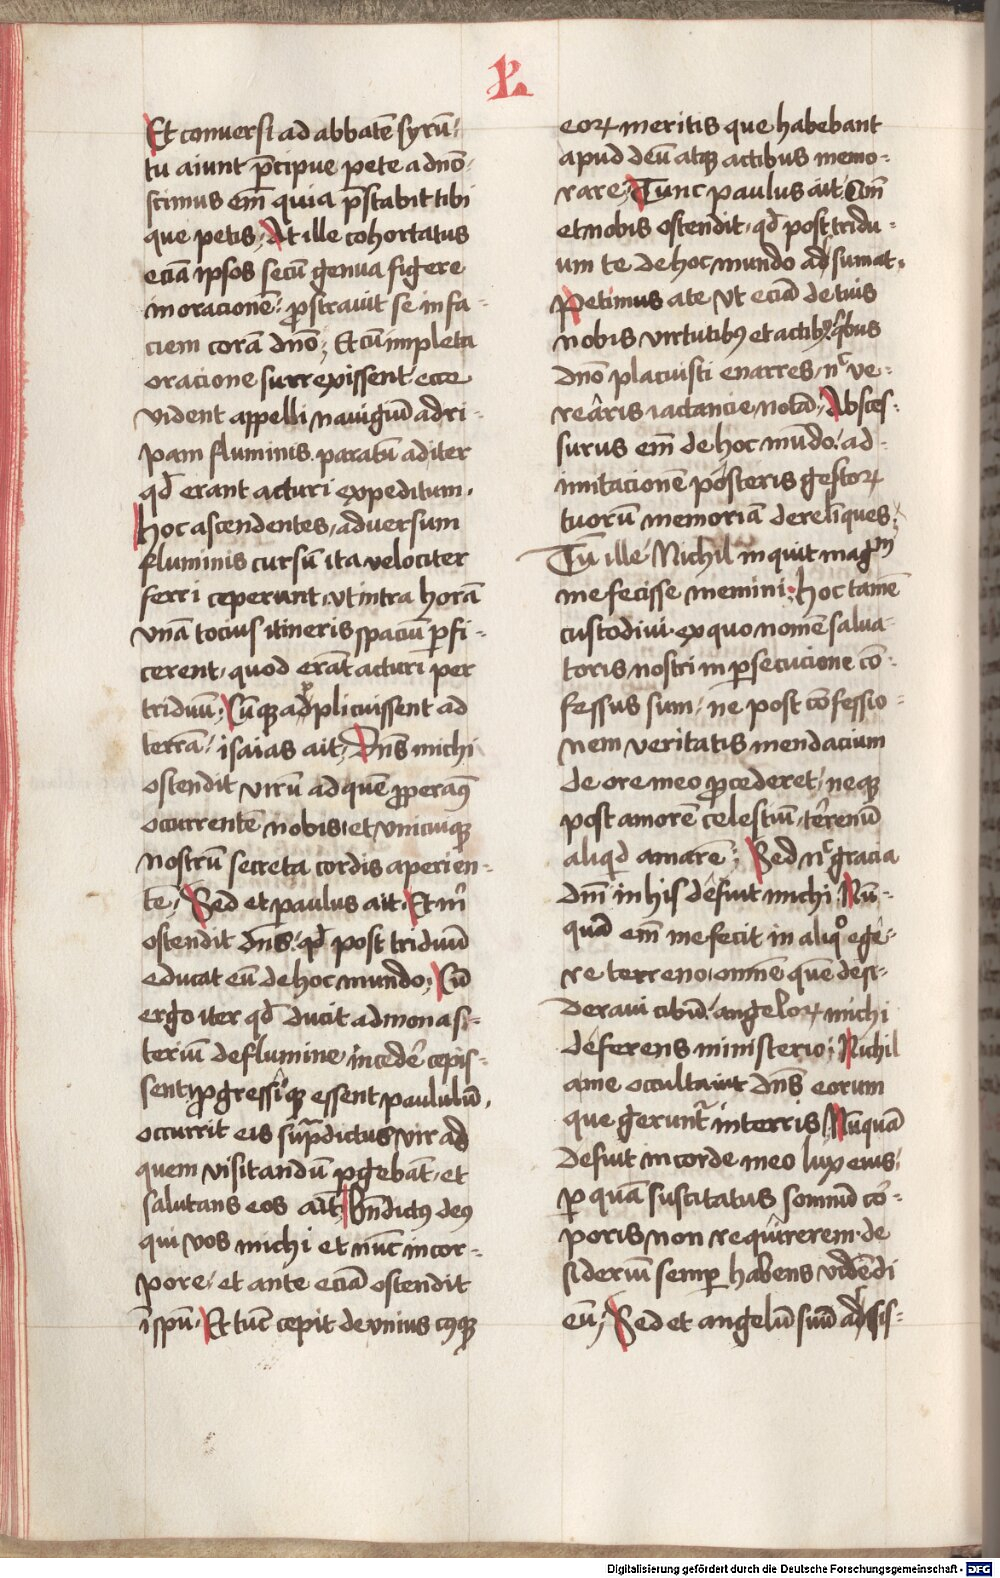 P.
Et conuersi ad abbatē syrū:
tu aiunt p̄cipue pete a dn̄o·
scimus em̄ quia p̄stabit tibi
que petis; At ille cohortatus
eciā ipsos secū genua figere
in oracionē: prostrauit se in fa-
ciem corā dn̄o; Et cū impleta
oracione surrexissent ecce
vident appelli nauigiū ad ri-
pam fluminis. paratū ad iter
qd̄ erant acturi expeditum.
Hoc ascendentes, aduersum
fluminis cursū ita velociter
ferri ceperunt, vt intra horā
vnā tocius itineris spaciū ꝑfi-
cerent, quod erāt acturi per
triduū; Cūqꝫ adplicuissent ad
terrā, isaias ait, Dn̄s michi
ostendit virū ad quē ꝓperamꝰ
occurrentē nobis, et vnicuiqꝫ
nostrū secreta cordis aperien-
tē; Sed et paulus ait, Et m̄
ostendit dn̄s, qd̄ post triduū
educat eū de hoc mundo; Cū
ergo iter qd̄ ducit ad monas-
teriū de flumine incedē cepis-
sent, ꝓgressiqꝫ essent paululū,
occurrit eis sup̄dictus vir ad
quem visitandū ꝑgebāt, et
salutans eos ait, Bn̄dictꝰ deꝰ
qui vos michi et nūc in cor-
pore, et ante eciā ostendit
ī spū. Et tūc cepit de vnius cꝰqꝫ
eoꝝ meritis que habebant
apud deū atqꝫ actibus memo-
rare; Tunc paulus ait, Om̄
et nobis ostendit, qd̄ post tridu-
um te de hoc mundo adsumat,
Petimus a te vt eciā de tuis
nobis virtutibꝫ et actibꝫ, qibus
dn̄o placuisti enarres, nc̄ ve-
rearis iactancie notā, Absces-
surus em̄ de hoc mūdo, ad
imitacionē posteris gestoꝝ
tuorū memoriā derelīques;
Tū ille, Nichil inquit magm
me fecisse memini, hoc tamē
custodiui, ex quo nomē salua-
toris nostri in ꝑsecucione cō-
fessus sum, ne post cōfessio-
nem veritatis mendacium
de ore meo ꝓcederet, neqꝫ
post amorē celestiū, terrenū
aliqd̄ amarē; Sed nc̄ gracia
dn̄i in his defuit michi, Nū-
quā em̄ me fecit in aliqo ege-
re terreno, omnē quē desi-
deraui cibū, angeloꝝ michi
deferens ministerio; Nichil
a me occultauit dn̄s eorum
que gerunt in terris, Nūquā
defuit in corde meo lux eius,
ꝑ quā suscitatus somnū cor-
poris non requirerem, de
sideriū semꝑ habens vidēdi
eū; Sed et angelū suū adsis-
Digitalisierung gefördert durch die Deutsche Forschungsgemeinschaft - DFG